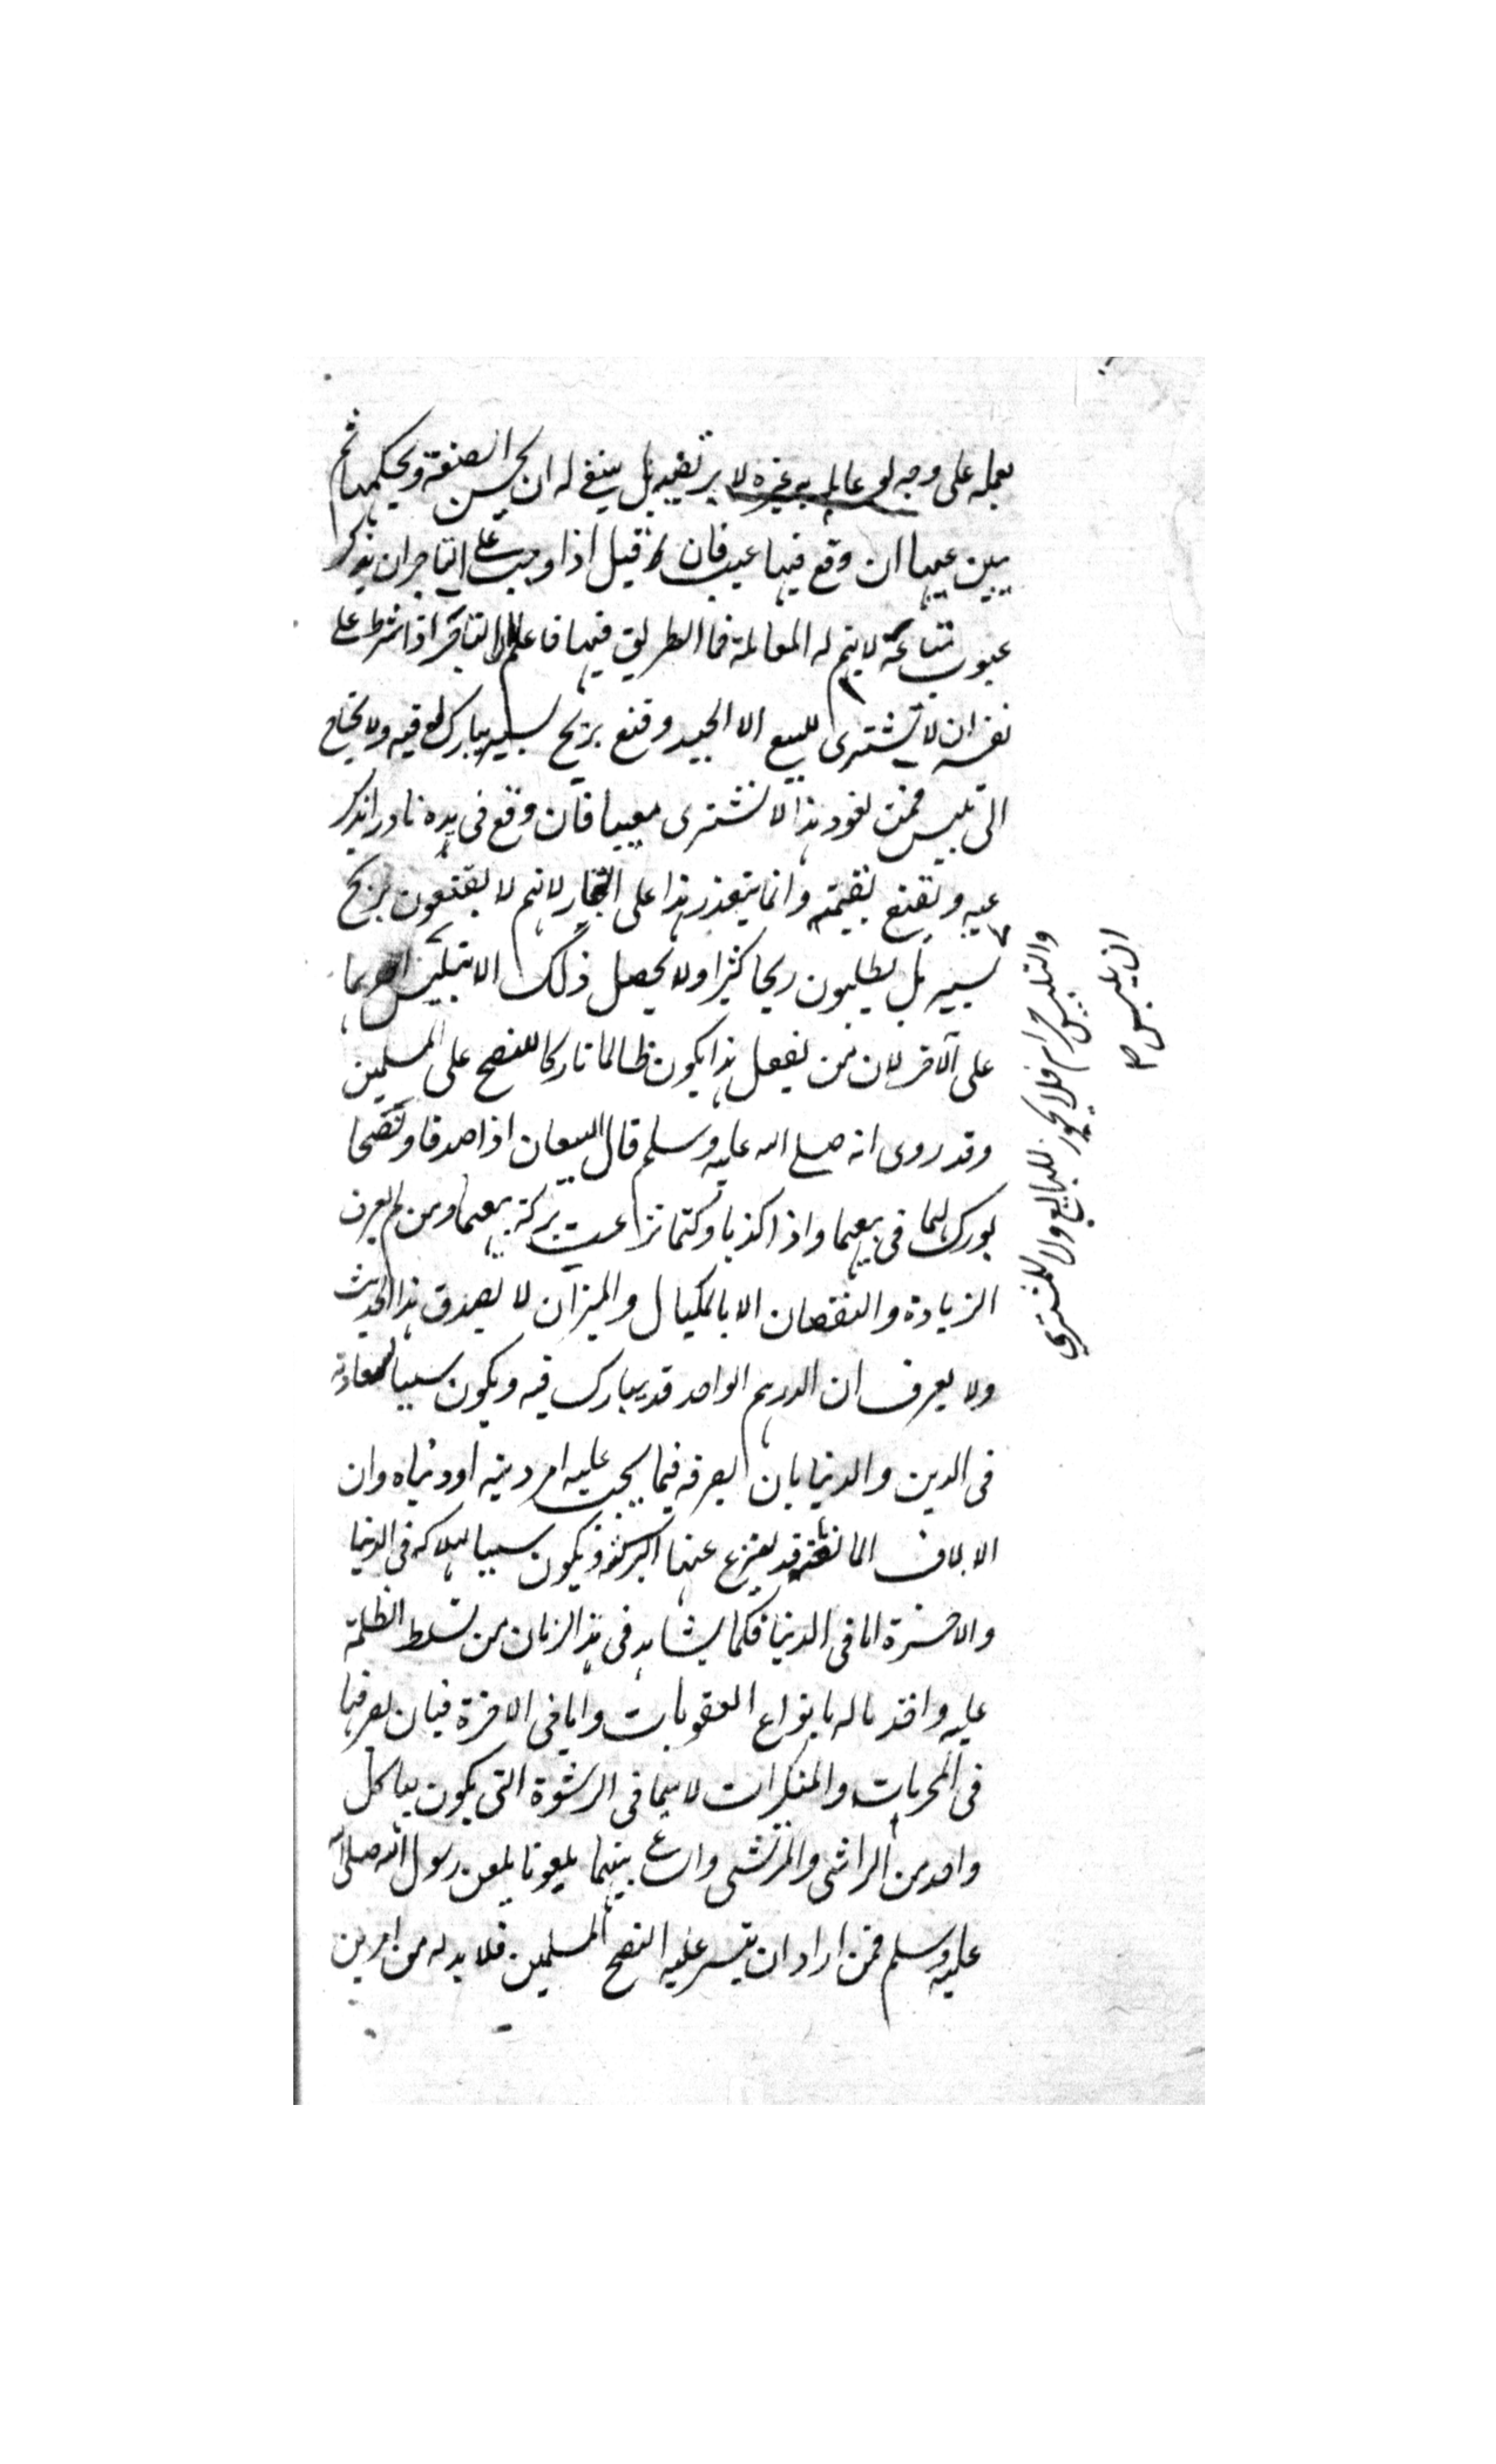 يعمله على وجه لو عامله به غيره لا يرتضيه بل ينبغى له ان يحسن الصنعة ويحكمها ثم
يبين عيبها ان وقع فيها عيب فان قيل اذا وجب على التاجر ان يذكر
عيوب متاعه لا يتم له المعاملة فما الطريق فيها فاعلم ان التاجر اذا شرط على
نفسه ان لا يشترى للبيع الا الجيد وقنع بربح يسير يبارك له فيه ولا يحتاج
الى تلبيس فمن تعود هذا لا يشترى معيبا فان وقع فى يده نادرا يذكر
عيبه ويقنع بقيمته وانما يتعذر هذا على التجار لانهم لا يقنعون بربح
يسير بل يطلبون ربحا كثيرا ولا يحصل ذلك الا بتلبيس
على الآخر لان من يفعل هذا يكون ظالما تاركا للنصح على المسلمين
وقد روى انه صلى الله عليه وسلم قال البيعان اذا صدقا ونصحا
بورك لهما فى بيعهما واذا كذبا وكتما نزاعت بركة بيعهما ومن لم يعرف
الزيادة والنقصان الا بالمكيال والميزان لا يصدق هذا الحديث
ولا يعرف ان الدرهم الواحد قد يبارك فيه ويكون سببا لسعادته
فى الدين والدنيا بان يصرفه فيما يجب عليه امر دينه او دنياه وان
الالاف المالفة قد ينزع عنها البركة ويكون سببا لهلاكه فى الدنيا
والاخرة اما فى الدنيا فكما يشاهد فى هذا الزمان من تسلط الظلمة
عليه واخذ ماله بانواع العقوبات واما فى الاخرة فبان يصرفها
فى المحرمات والمنكرات لا سيما فى الرشوة التى يكون بها كل
واحد من الراشى والمرتشى والساعى بينهما ملعونا بلعن رسول الله صلى الله
عليه وسلم فمن اراد ان يتيسر عليه النصح المسلمين فلا بد له من امرين
والتلبيس حرام فلا يجوز للبايع ولا للمشترى
ان يلبس